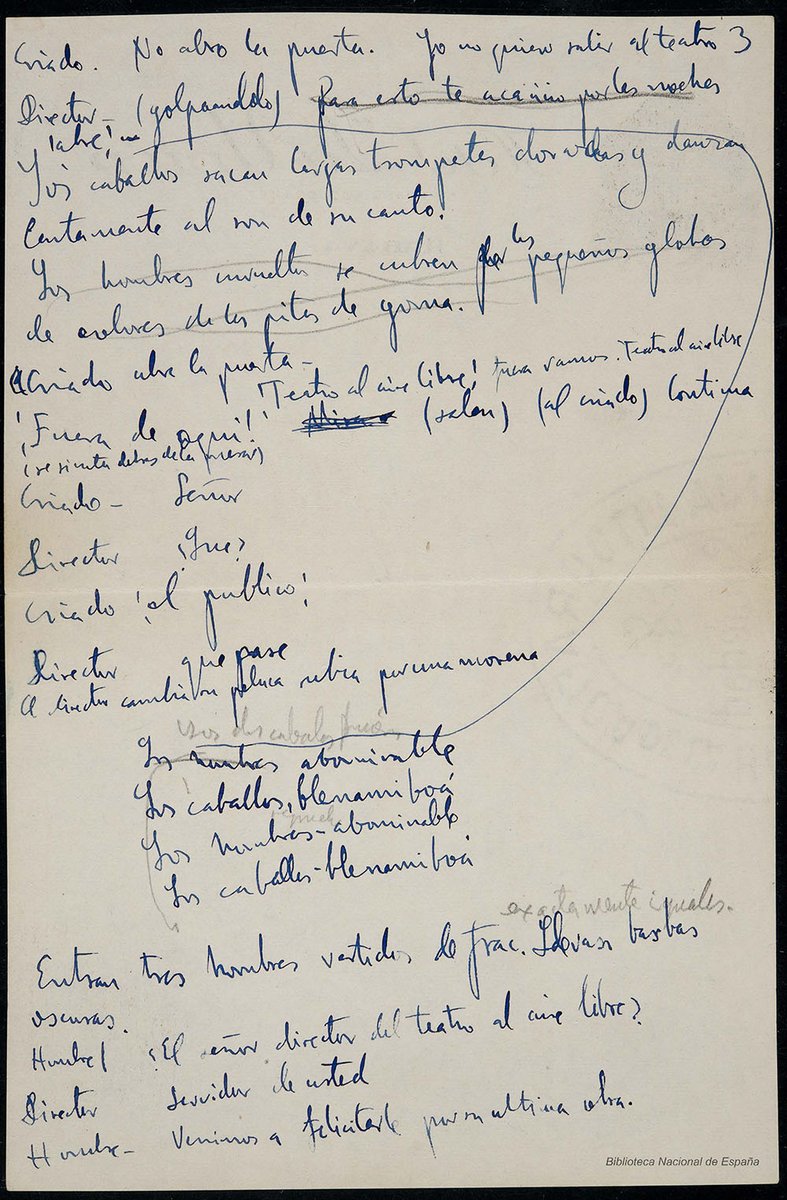 Criado. No abro la puerta. Yo no quiero salir al teatro 3
Director – (golpeandolo) Para esto te acaricio por las noches
¡abre!
Los caballos sacan largas trompetas doradas y danzan
lentamente al son de su canto.
Los hombres se cubren por los pequeños globos
de colores de los pitos de goma.
Criado abre la puerta –
Teatro al aire libre! fuera vamos. Teatro al aire libre
¡Fuera de aqui! (salen) (al criado) Continua
(se sienta detras de la mesa)
Criado – Señor
Director ¿Que?
Criado ¡el publico!
Director que pase
El director cambia su peluca rubia por una morena
Los hombres abominable
Los caballos, blenamiboá
Los hombres – abominable
Los caballos – blenamiboá
exactamente iguales.
Entran tres hombres vestidos de frac. Llevan barbas
oscuras.
Hombre 1 ¿El señor director del teatro al aire libre?
Director Servidor de usted
Hombre – Venimos a felicitarle por su ultima obra.
Biblioteca Nacional de España